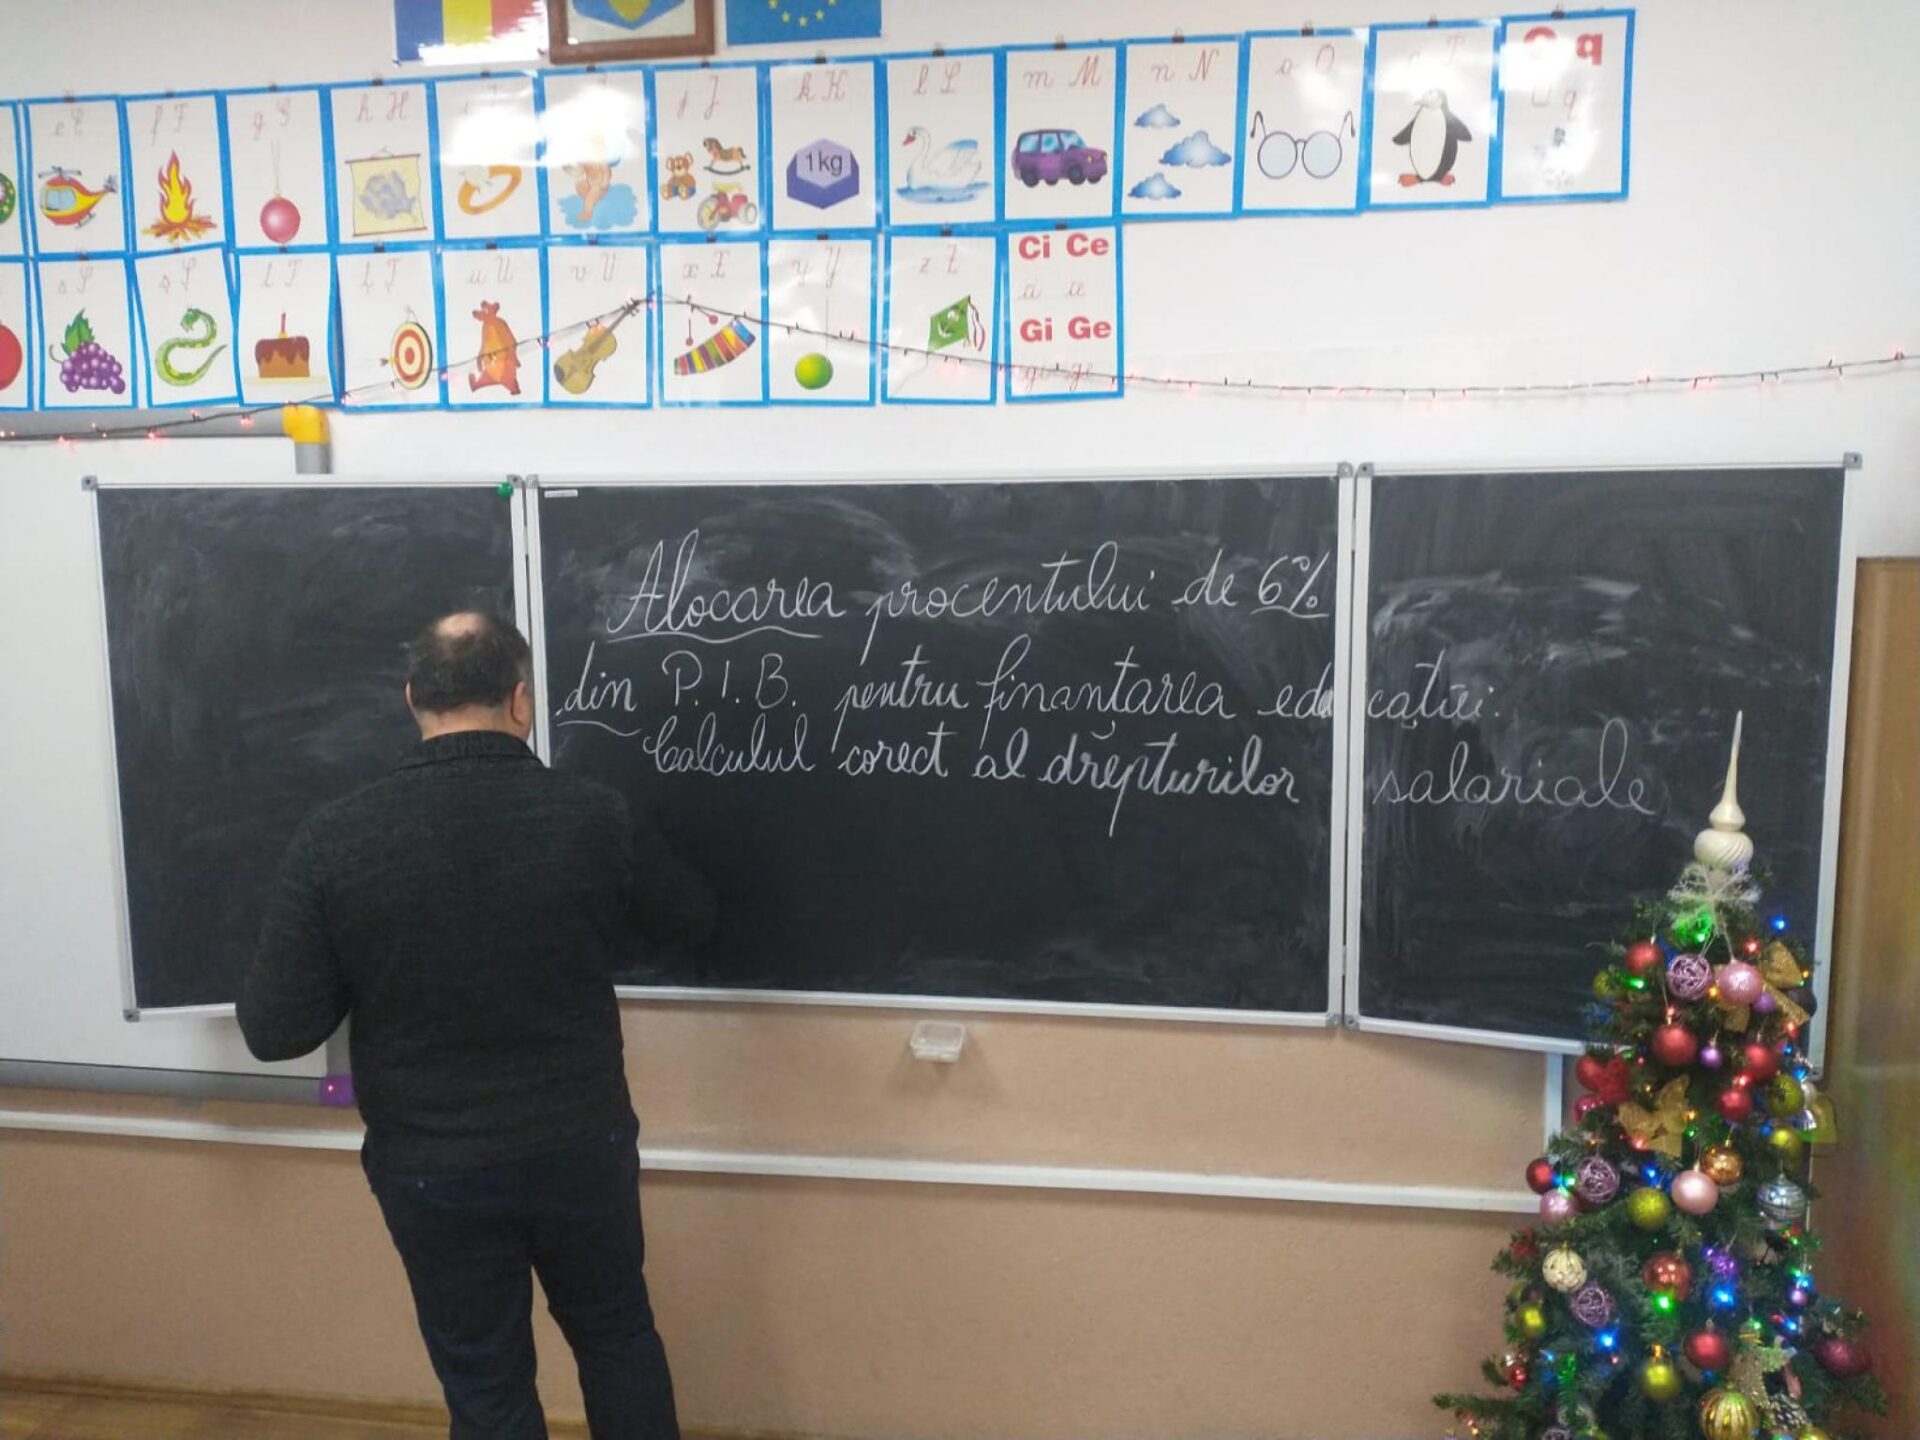 e E
f F
g G
h H
i I
j J
k K
l L
m M
n N
o O
P
q
q
1kg
s S
ș Ș
t T
ț Ț
u U
v V
x X
y Y
z Z
Ci Ce
ci ce
Gi Ge
gi ge
Alocarea procentului de 6%
din P.I.B. pentru finanțarea educației.
Calculul corect al drepturilor salariale